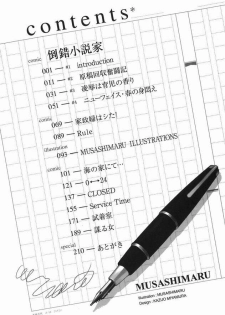 contents*
comic 倒錯小説家
001 — #1 introduction
011 — #2 原稿回収奮闘記
031 — #3 後輩は育児の香り
051 — #4 ニューフェイス・春の身悶え
comic
069 — 家政婦はシた!
089 — Rule
illustration
093 — MUSASHIMARU ILLUSTRATIONS.
comic
101 — 海の家にて…
121 — 0⟷24
137 — CLOSED
155 — Service Time
171 — 試着室
189 — 謀る女
special
210 — あとがき
MUSASHIMARU
Illustration. MUSASHIMARU
Design. KAZUO MIYAMURA